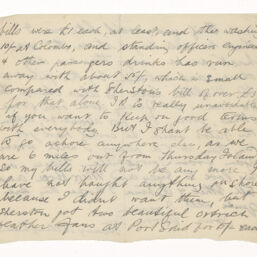 bills were £1 each, at least, and the washing
10/- at Colombo, and standing officers engineers
& other passengers drinks has run
away with about 25/-, which is small
compared with Sherston's bill of over £
for that alone. It is really unavoidable
if you want to keep on good terms
with everybody. But I shan't be able
to go ashore anywhere else, as we
are 6 miles out from Thursday Island
so my bills will not be any more. I
have not bought anything on shore
because I didn't want them, but
Sherston got two beautiful ostrich
feather fans at Port Said for